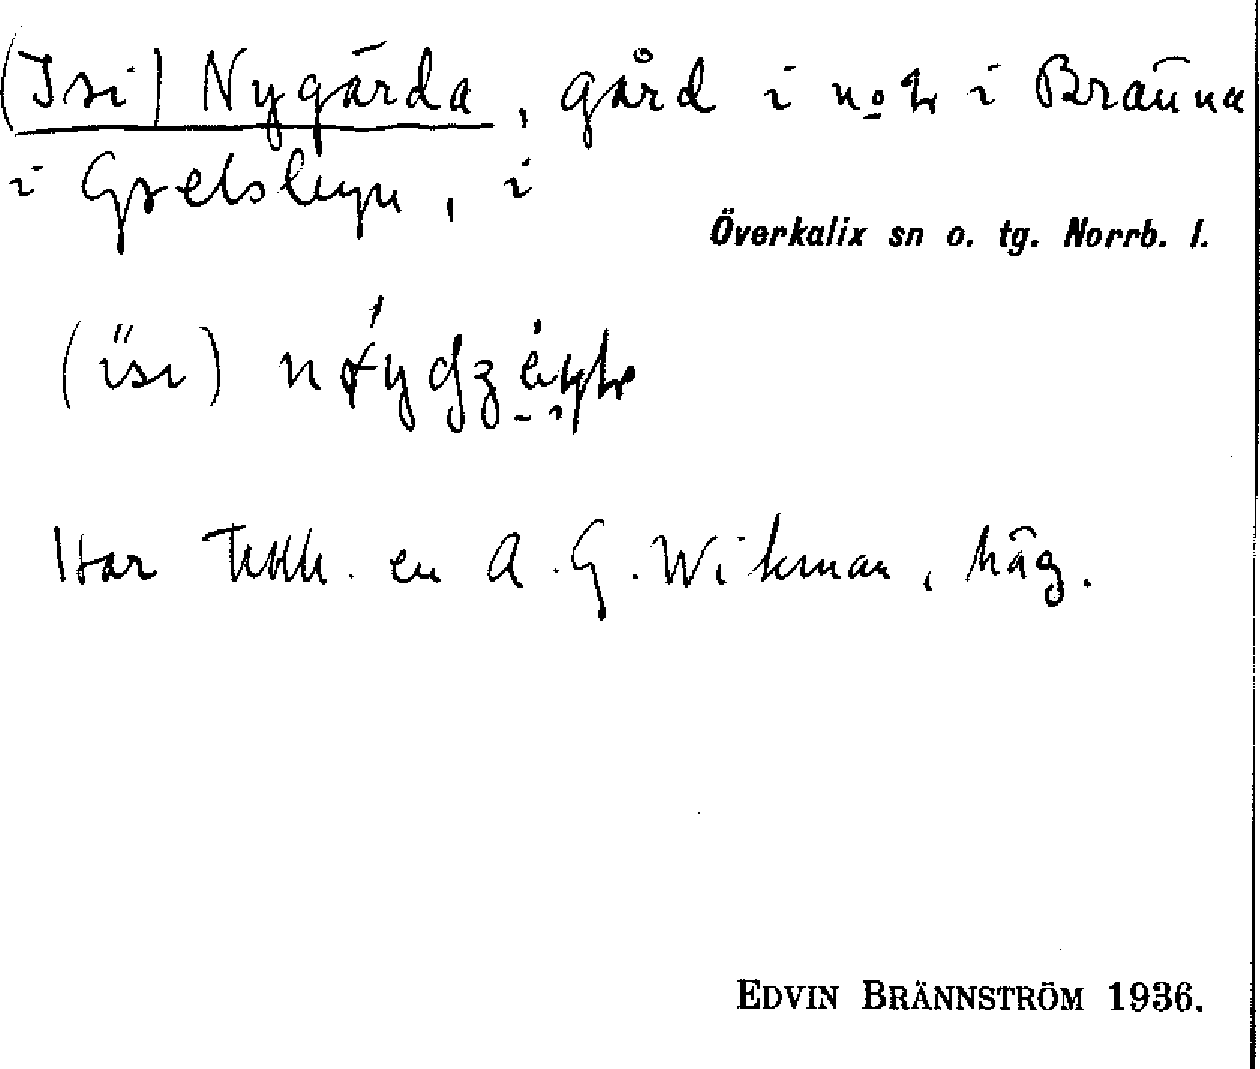 (Isi) Nygårda, gård i n.o. tr i Bränna
i Grelsbyn, i
Överkalix sn o. tg. Norrb. l.
(isi)
Har tillh. en A. G. Wikman, häg.
EDVIN BRÄNNSTRÖM 1936.